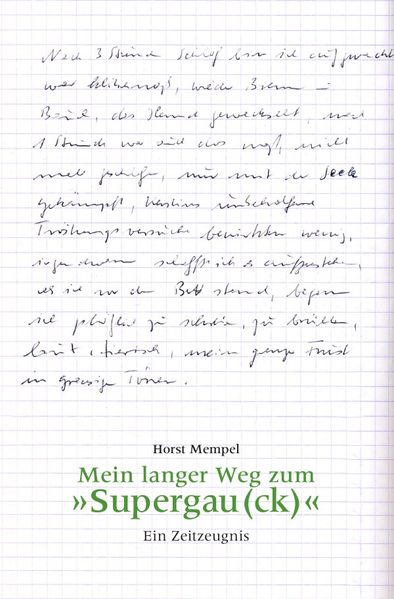 Nach 3 Stunden Schlaf bin ich aufgewacht
war klitschnaß, wieder Brennen im
das Hemd gewechselt, nach
1 Stunde war auch das naß, nicht
mehr geschlafen, nur mit der Seele
gekämpft, unbeholfene
Tröstungsversuche bewirkten wenig,
irgendwann schaffte ich es aufzustehen,
als ich vor dem Bett stand, begann
ich plötzlich zu schreien, zu brüllen,
laut, tierisch, mein ganzer Frust
in Tönen.
Horst Mempel
Mein langer Weg zum
»Supergau(ck)«
Ein Zeitzeugnis